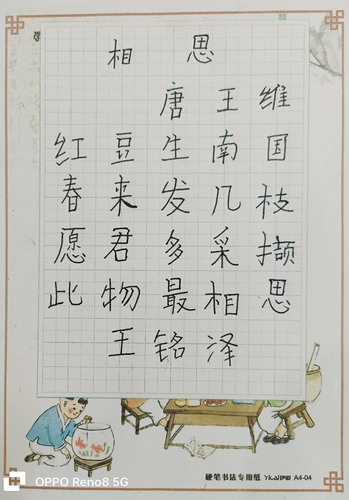 相思
唐 王维
红豆生南国
春来发几枝
愿君多采撷
此物最相思
王铭泽
硬笔书法专用纸 A4-04
OPPO Reno8 5G